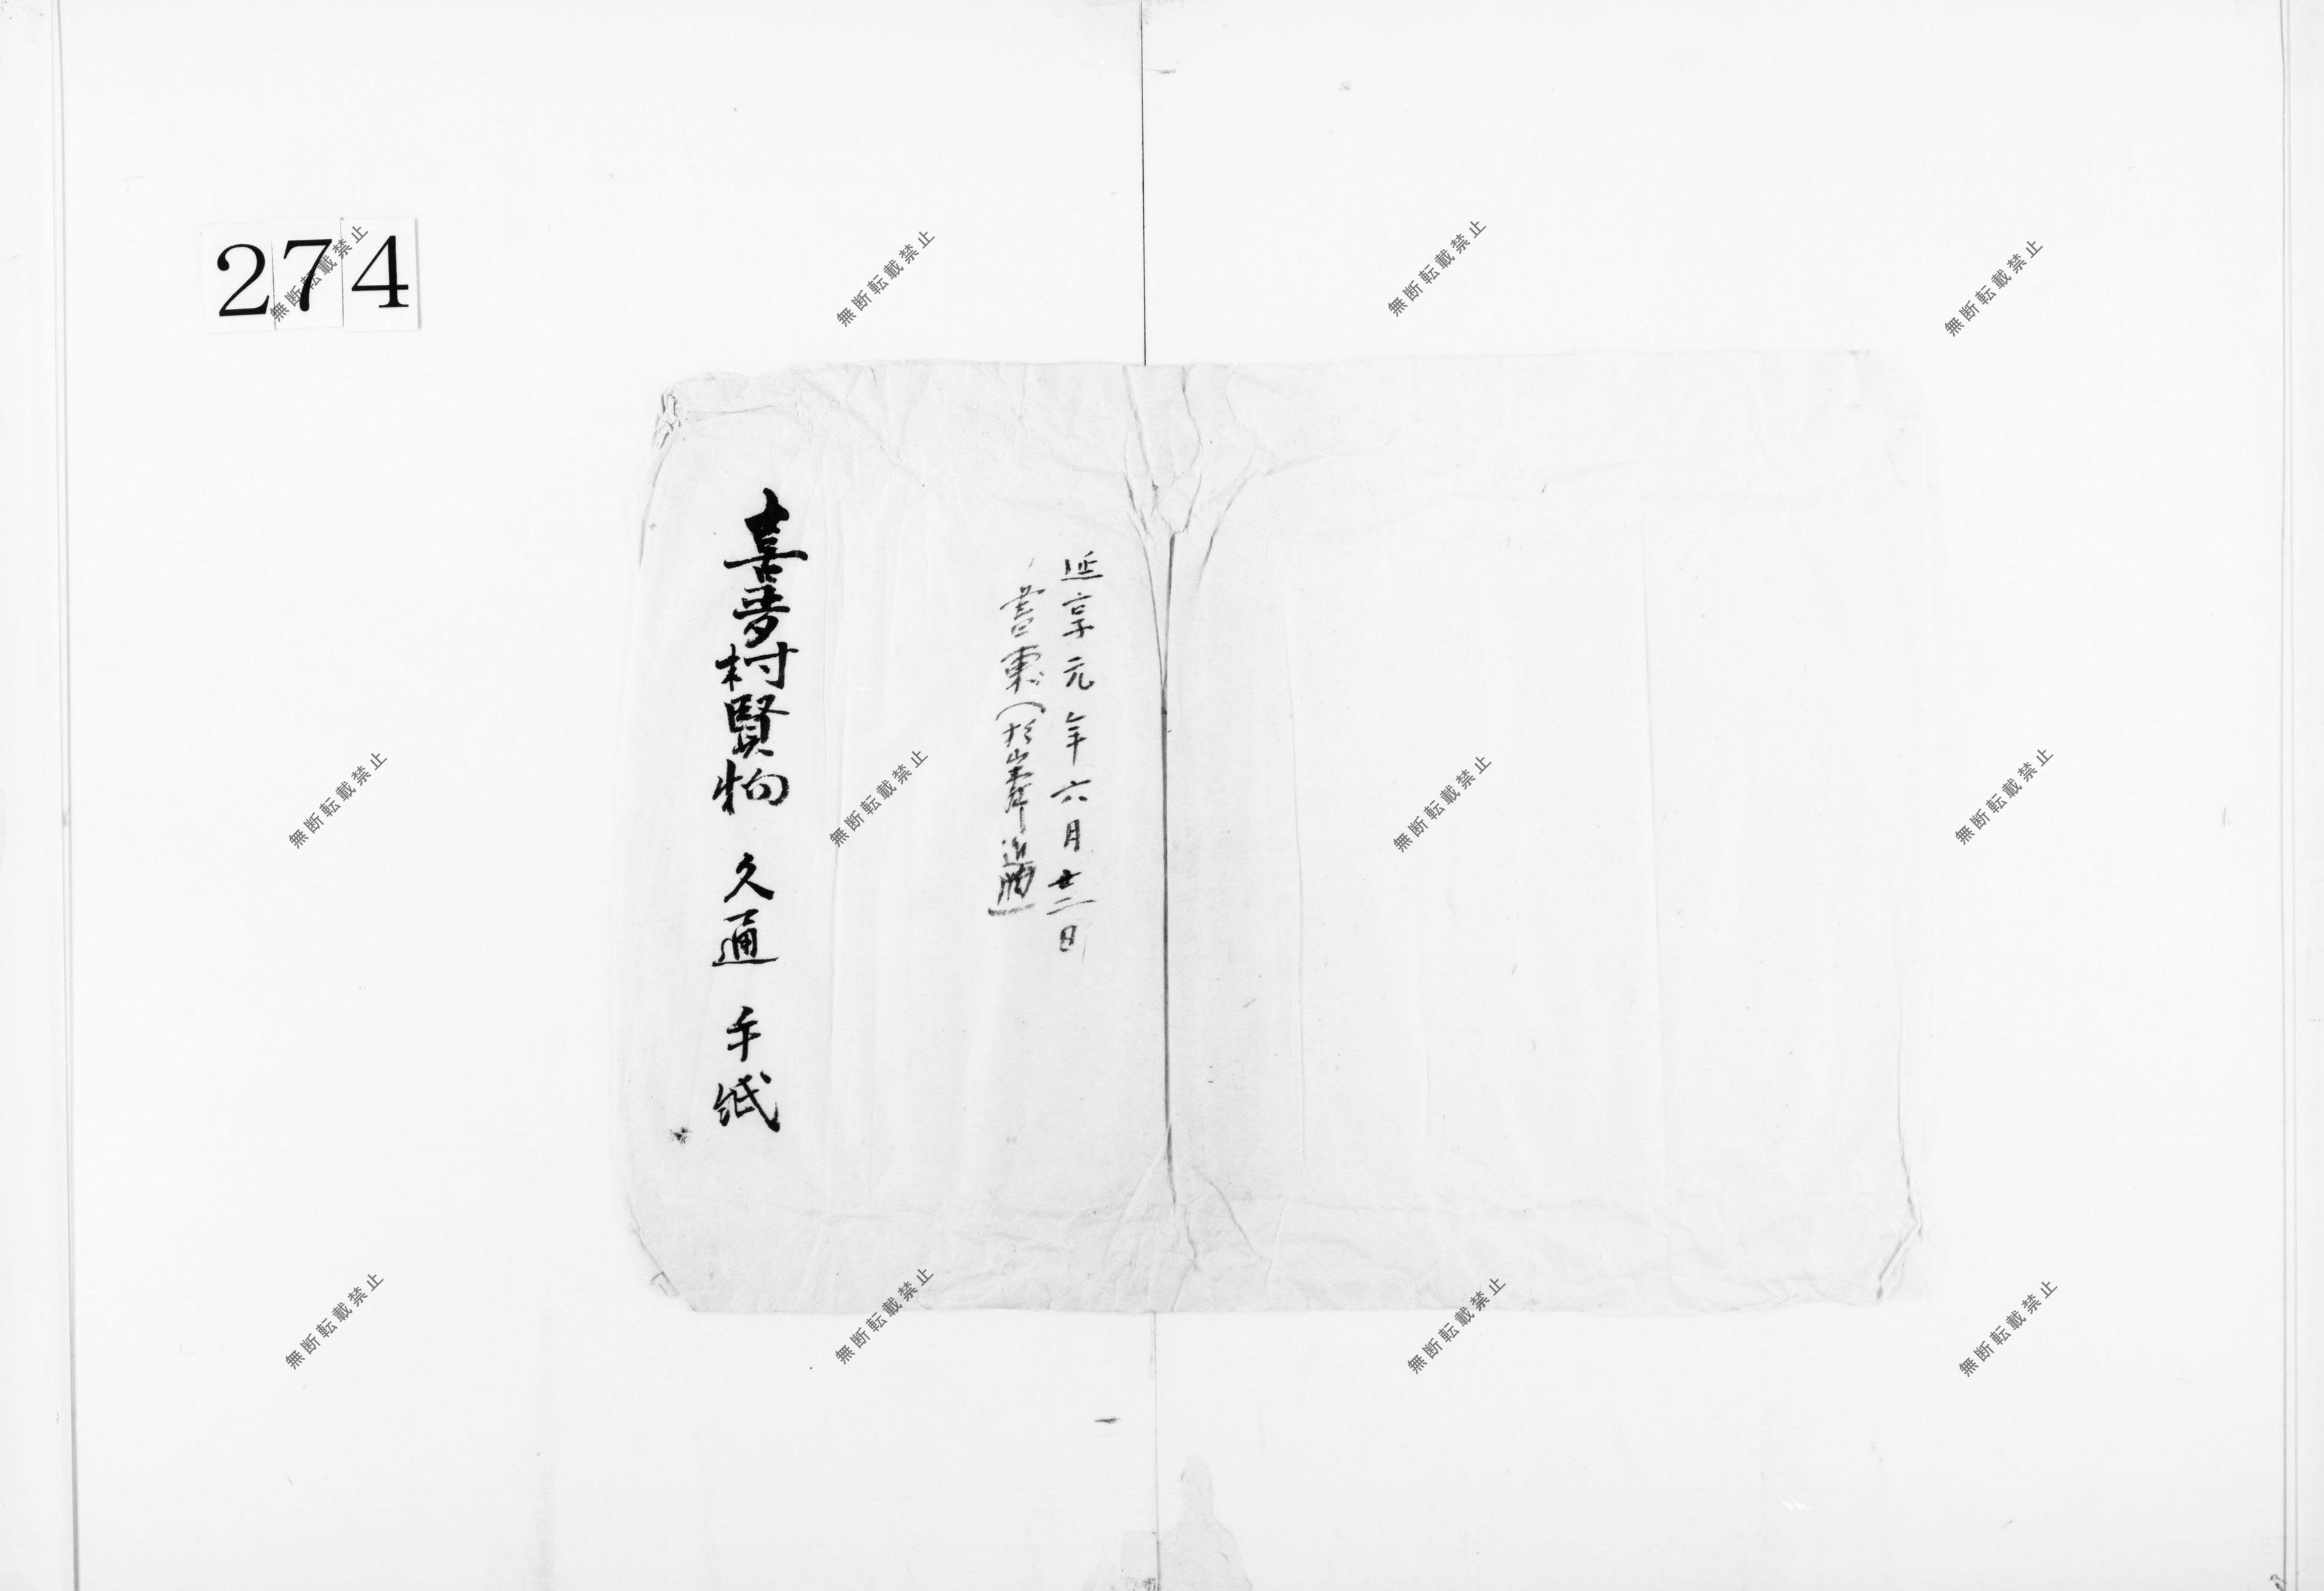 274
延享元年六月廿二日
書東
喜多村賢物 久通 手紙
無断転載禁止
無断転載禁止
無断転載禁止
無断転載禁止
無断転載禁止
無断転載禁止
無断転載禁止
無断転載禁止
無断転載禁止
無断転載禁止
無断転載禁止
無断転載禁止